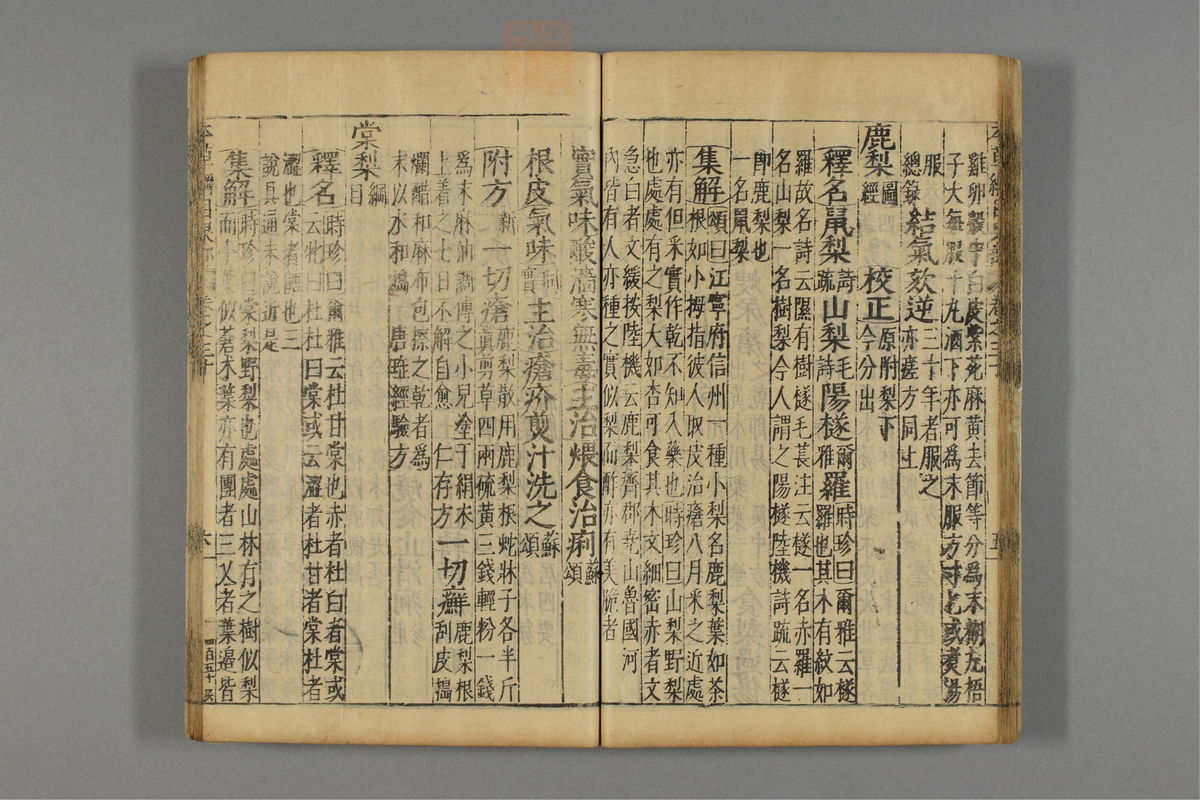 雞卵殼等白皮紫蘇麻黄去節等分爲末糊丸梧
子大每服十丸酒下亦可爲末服方寸匕或煮湯
服
總錄
結氣欬逆
三十年者服之
亦瘥方同上
鹿梨
圖
經
校正
原附梨下
今分出
釋名鼠梨
詩
疏
山梨
毛
詩
陽檖
爾
雅
羅
時珍曰爾雅云檖
羅也其木有紋如
羅故名詩云隰有樹檖毛萇注云檖一名赤羅一
名山梨一名樹梨今人謂之陽檖陸機詩疏云檖
即鹿梨也
一名鼠梨
集解
頌曰江寧府信州一種小梨名鹿梨葉如茶
根如小拇指彼人取皮治瘡八月采之近處
亦有但采實作乾不知入藥也時珍曰山梨野梨
也處處有之梨大如杏可食其木文細密赤者文
急白者文緩按陸機云鹿梨齊郡堯山魯國河
内皆有人亦種之實似梨而酢亦有美脆者
實氣味酸濇寒無毒主治煨食治痢
蘇
頌
根皮氣味
同
實
主治瘡疥煎汁洗之
蘇
頌
附方
新
一切瘡
鹿梨散用鹿梨根蛇牀子各半斤
真剪草四兩硫黄三錢輕粉一錢
爲末麻油調傅之小兒塗于絹衣
上着之七日不解自愈
仁存方
一切癬
鹿梨根
刮皮搗
爛醋和麻布包擦之乾者爲
末以水和搗
唐瑶經驗方
棠梨
綱
目
釋名
時珍曰爾雅云杜甘棠也赤者杜白者棠或
云牝曰杜牡曰棠或云濇者杜甘者棠杜者
濇也棠者餹也三
說俱通末說近是
集解
時珍曰棠梨野梨也處處山林有之樹似梨
而小葉似蒼术葉亦有團者三叉者葉邊皆